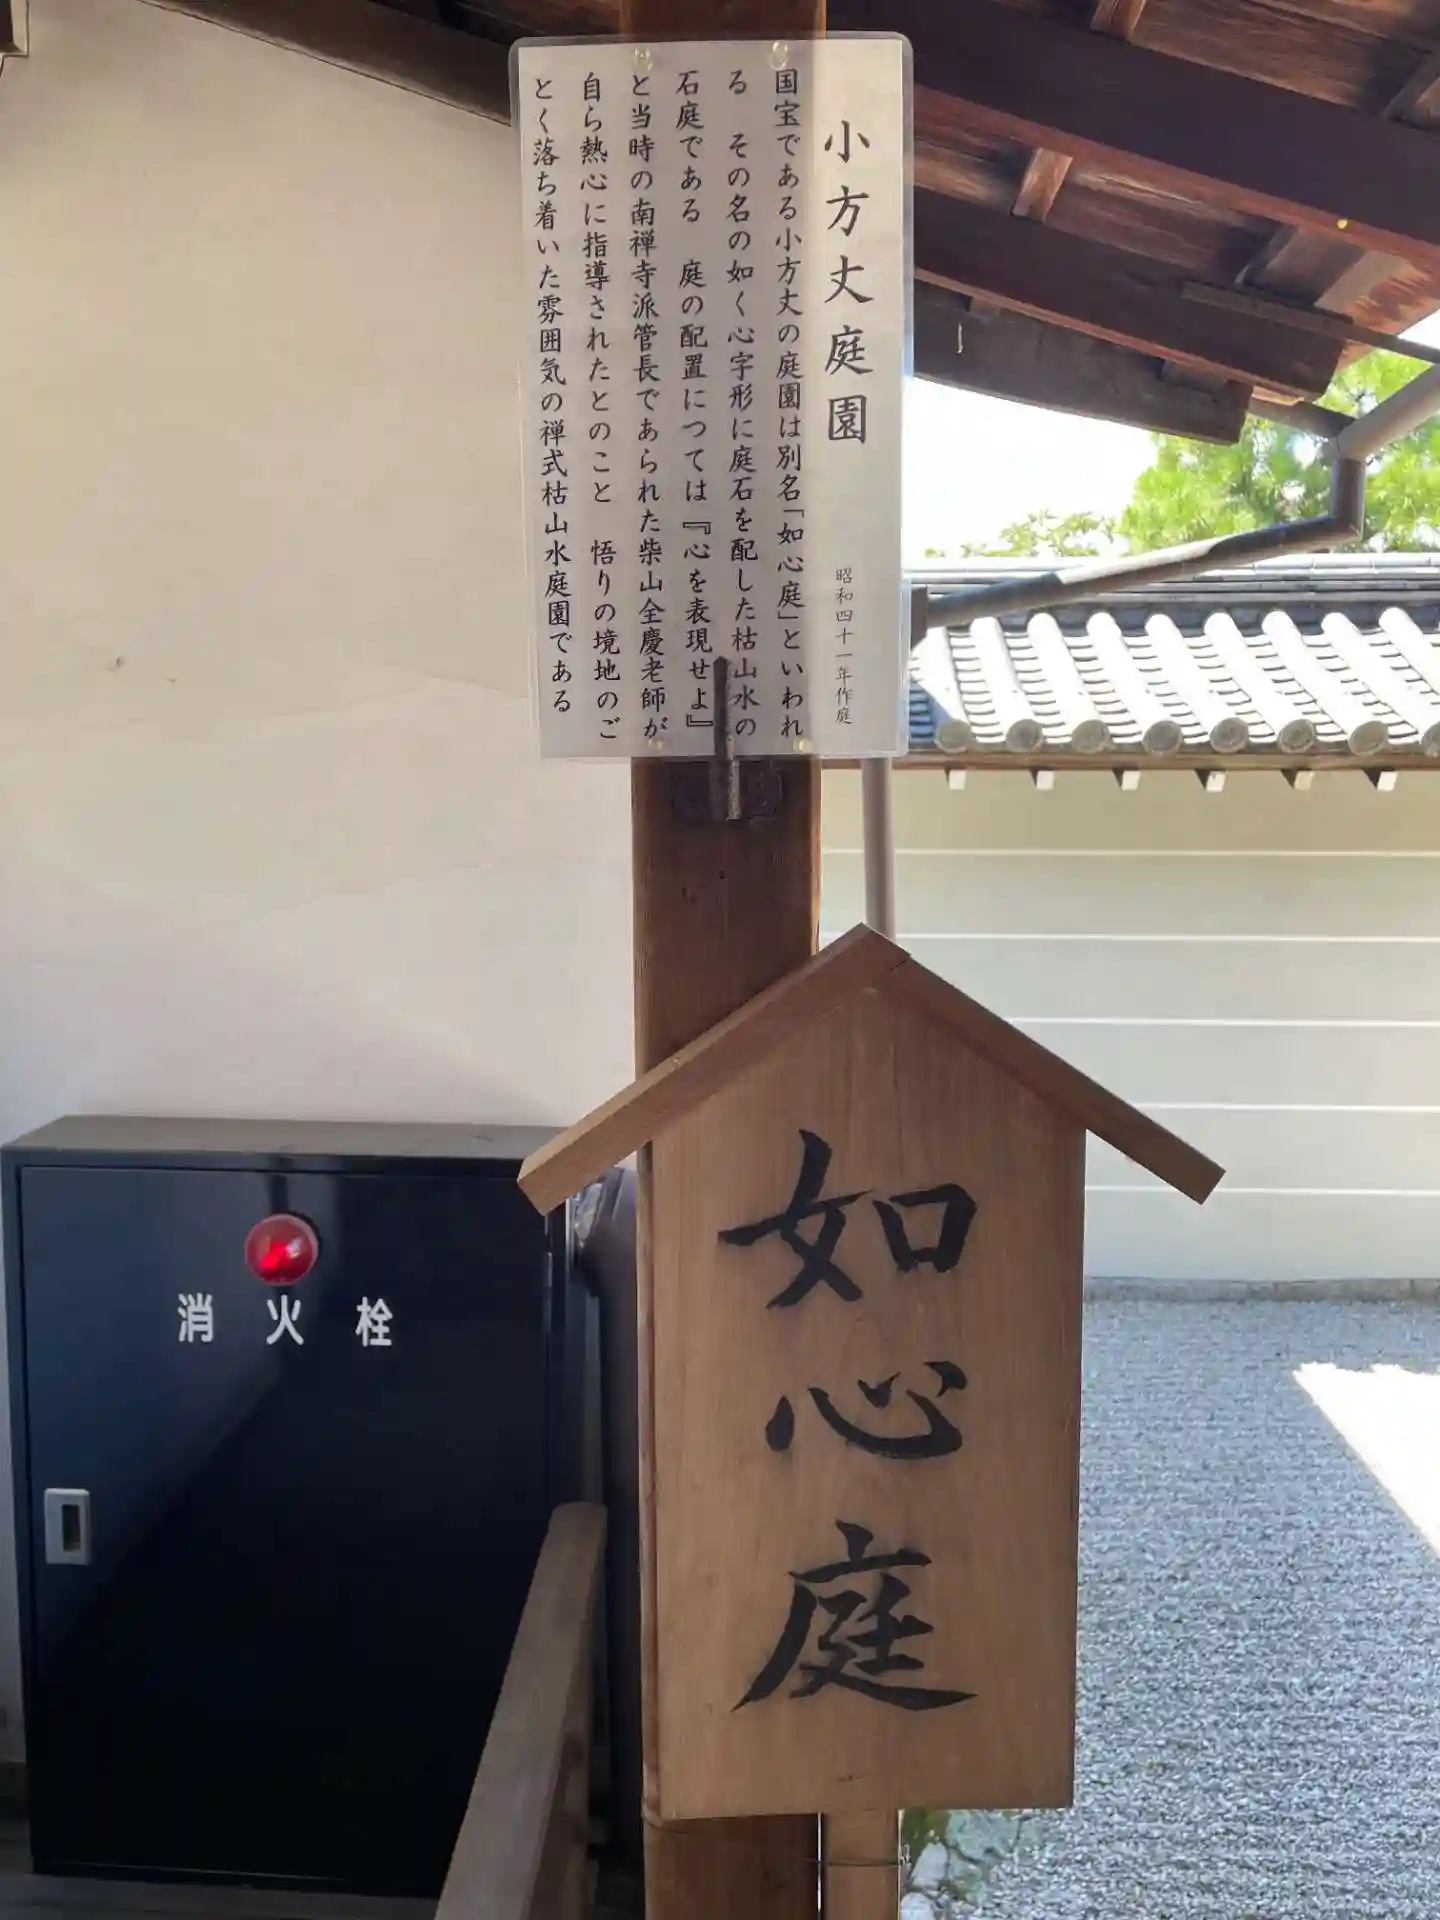 小方丈庭園
昭和四十一年作庭
国宝である小方丈の庭園は別名「如心庭」といわれ
る　その名の如く心字形に庭石を配した枯山水の
石庭である　庭の配置につては『心を表現せよ』
と当時の南禅寺派管長であられた柴山全慶老師が
自ら熱心に指導されたとのこと　悟りの境地のご
とく落ち着いた雰囲気の禅式枯山水庭園である
如心庭
消火栓